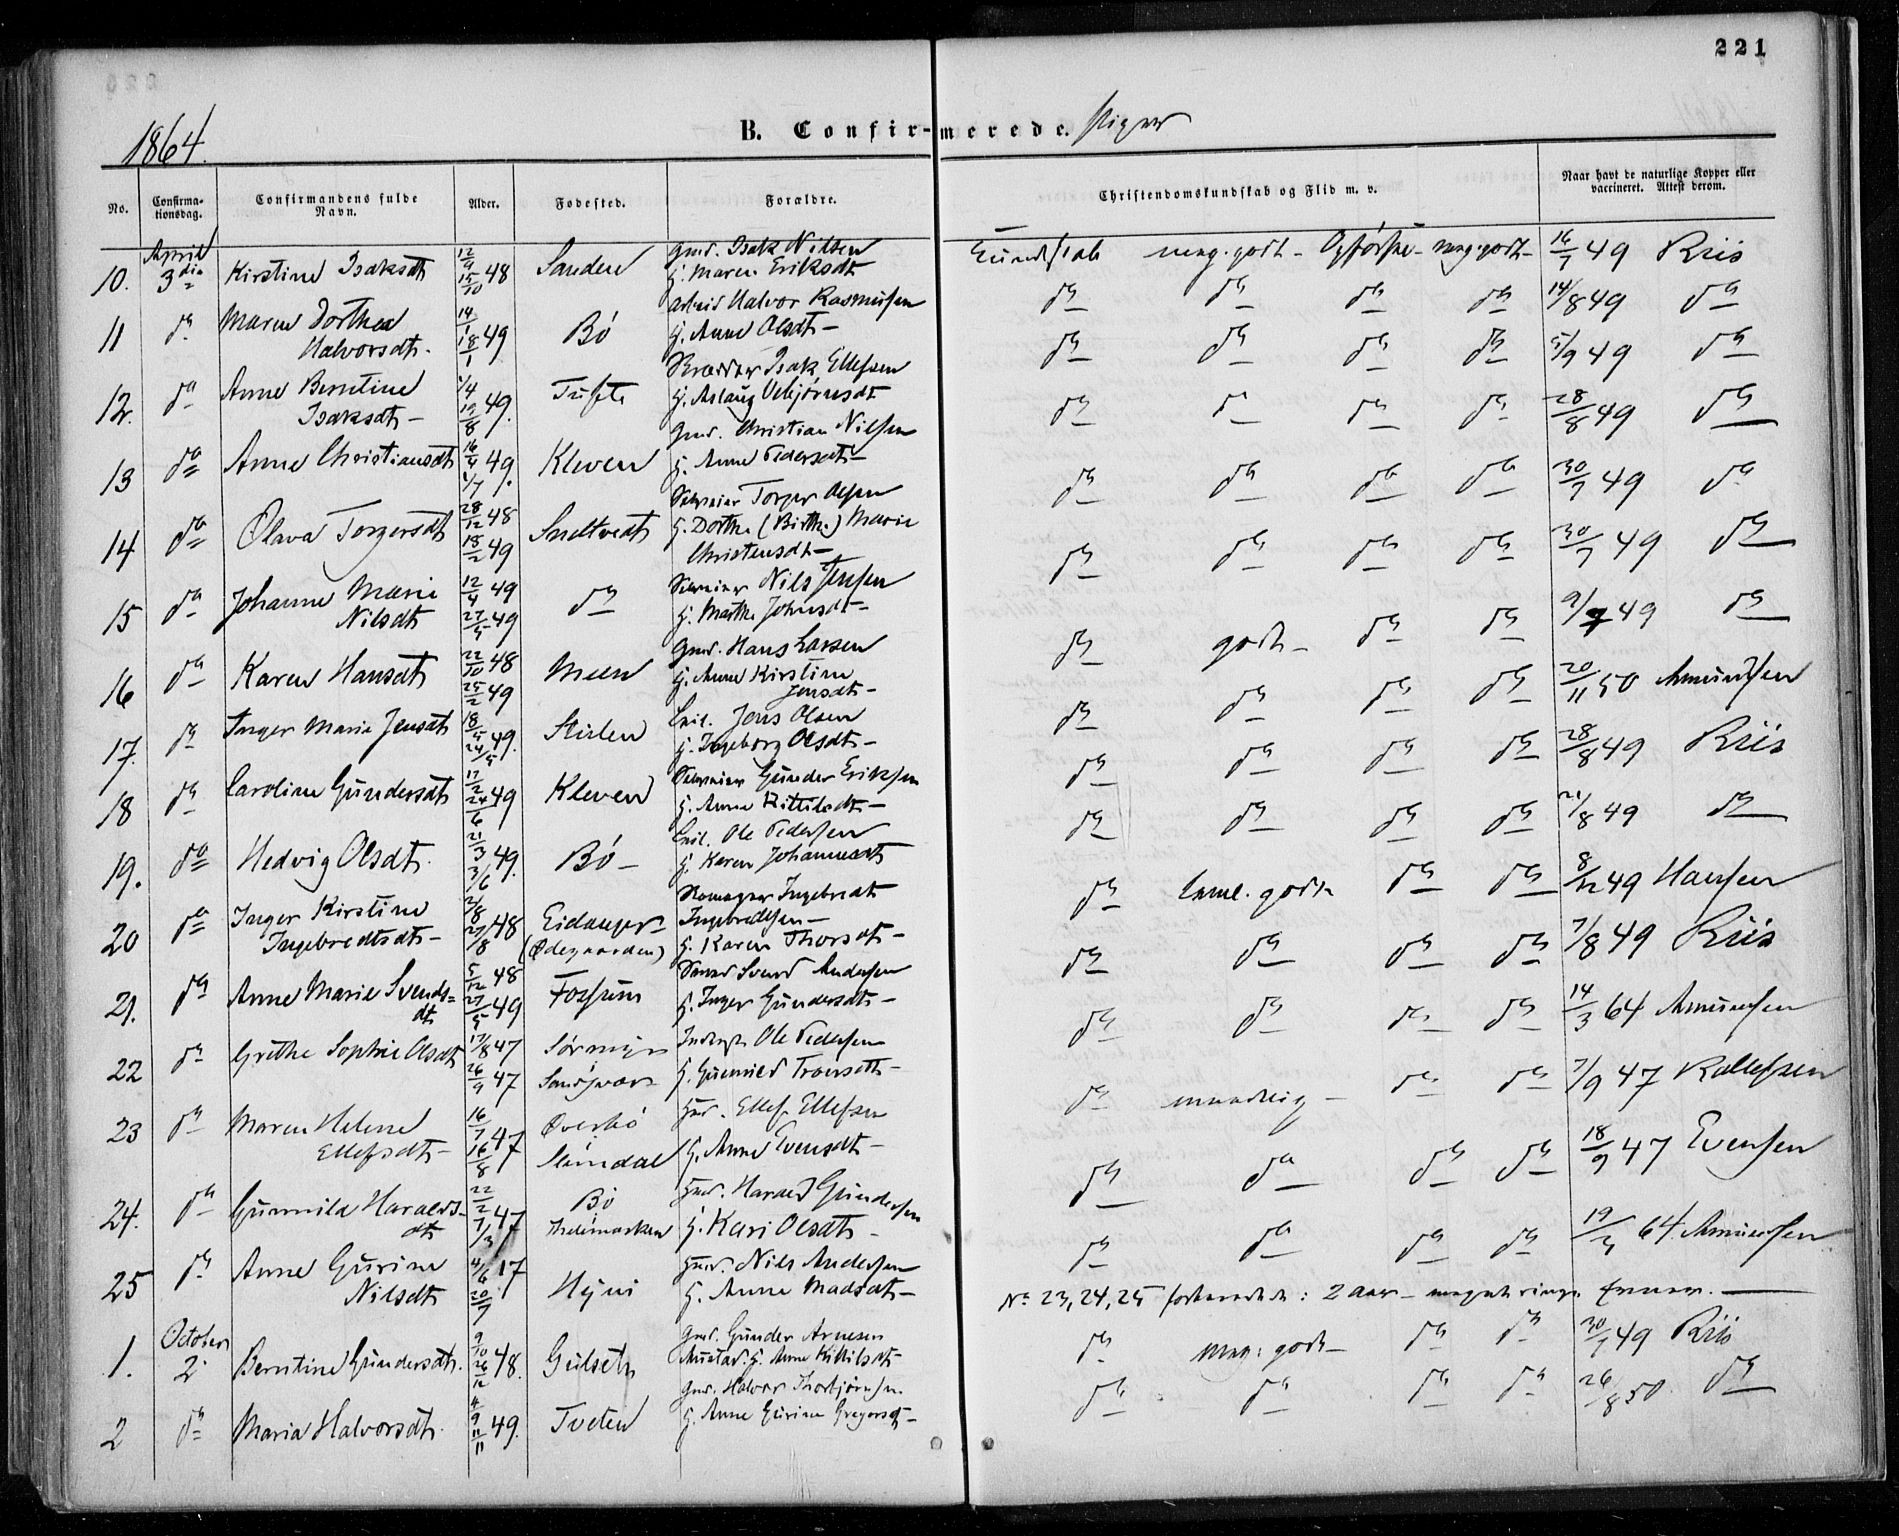 221
1864.
B. Confir-merede. Piger
No. Confirma-tionsdag. Confirmandens fulde Navn. Alder. Fødested. Forældre. Christendomskundskab og Flid m. v. Naar havt de naturlige Kopper eller vaccineret. Attest derom.
10. April 3die Kirstine Isaksdt 12/9 15/10 48 Sanden Gmd. Isak Nilsen H. Maren Eriksdt Kundskab meg. godt - Opførsel - meg godt - 16/7 49 Riis
11 do Maren Dorthea Halvorsdt. 14/1 18/1 49 Bö Halvor Rasmusen H. Anne Olsdt - do do do do 14/8 49 do
12. do Anne Berntine Isaksdt - 1/4 19/8 49. Tufte Skrædder Isak Ellefsen H. Aslaug Vebjörnsdt do do do do 5/9 49 do
13 do Anne Christiansdt 16/4 1/7 49. Kleven Gmd. Christian Nilsen H. Anne Pedersdt - do do do do 28/8 49 do
14 do Olava Torgersdt 28/12 48 18/2 49 Sneltvedt Torger Olsen H. Dorthe (Birthe) Marie Christensdt - do do do do 30/7 49 do
15 do Johanne Marie Nilsdt 12/4 49 27/5 49 do Nils Jensen H. Marthe Johnsdt - do do do do 30/7 49 do
16 do Karen Hansdt 22/10 48 25/2 49 Meen Gmd. Hans Larsen H. Anne Kirstine Jensdt - do godt - do do 9/7 49 do
17. do Inger Marie Jensdt 18/5 24/5 49. Stulen Jens Olsen H. Ingeborg Olsdt - do do do do 20/11 50 Amundsen
18 do Caroline Gundersdt 17/2 24/6 49 Kleven Gunder Eriksen H. Anne Kittilsdt - do do do do 28/8 49 Riis
19. do Hedvig Olsdt. 21/3 3/6 49. Bö - Ole Pedersen H. Karen Johannesdt do do do do 21/8 49 do
20 do Inger Kirstine Ingebredtsdt - 2/8 27/8 48 Eidanger (Ødegaarden) Ingebredt Ingebredtsen - H. Karen Thorsdt - do teml. godt do do 8/12 49 Hansen
21. do Anne Marie Svends-dt 5/12 48 27/5 49 Fossum Svend Andersen H. Inger Gundersdt - do do do do 7/8 49 Riis
22 do Grethe Sophie Olsdt 17/8 47 26/9 47 Sandsvær Ole Pedersen H. Gunnild do do do do 14/3 64 Amundsen
23 do Maren Helene Ellefsdt - 16/7 16/8 47 Överbö Slemdal Gmd. Ellef Ellefsen H. Anne Evensdt - do maadelig - do do 7/9 47 Rollefsen
24. do Gunnild Haralds-dt 22/2 7/3 47 Bö Thelemarken Gmd. Harald Gundersen H. Kari Olsdt - do do do do 18/9 47 Evensen
25 do Anne Gurine Nilsdt 4/6 20/7 47 Gmd. Nils Andersen H. Anne Madsdt - do do do do 19/3 64 Amundsen
No 23, 24, 25 forberedte: 2 Aar - meget ringe Evner. -
1. October 2. Berntine Gundersdt. 9/10 26/12 48. Gulseth Gmd. Gunder Arnesen H. Anne Kittilsdt - do meg: godt - do do 30/7 49 Riis
2 do Maria Halvorsdt. 4/9 11/11 49. Tveten Gmd. Halvor Thorbjörnsen. H. Anne Gurine Gregersdt - do do do do 26/8 50 do